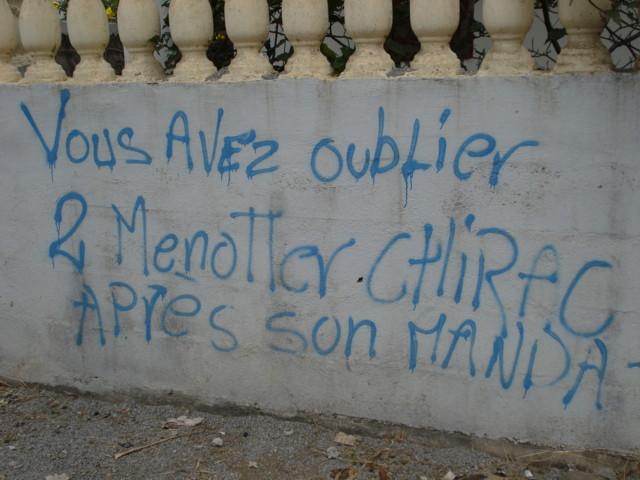 Vous AVEz oublier
2 Menotter CHiRAC
APrès son MANDA-